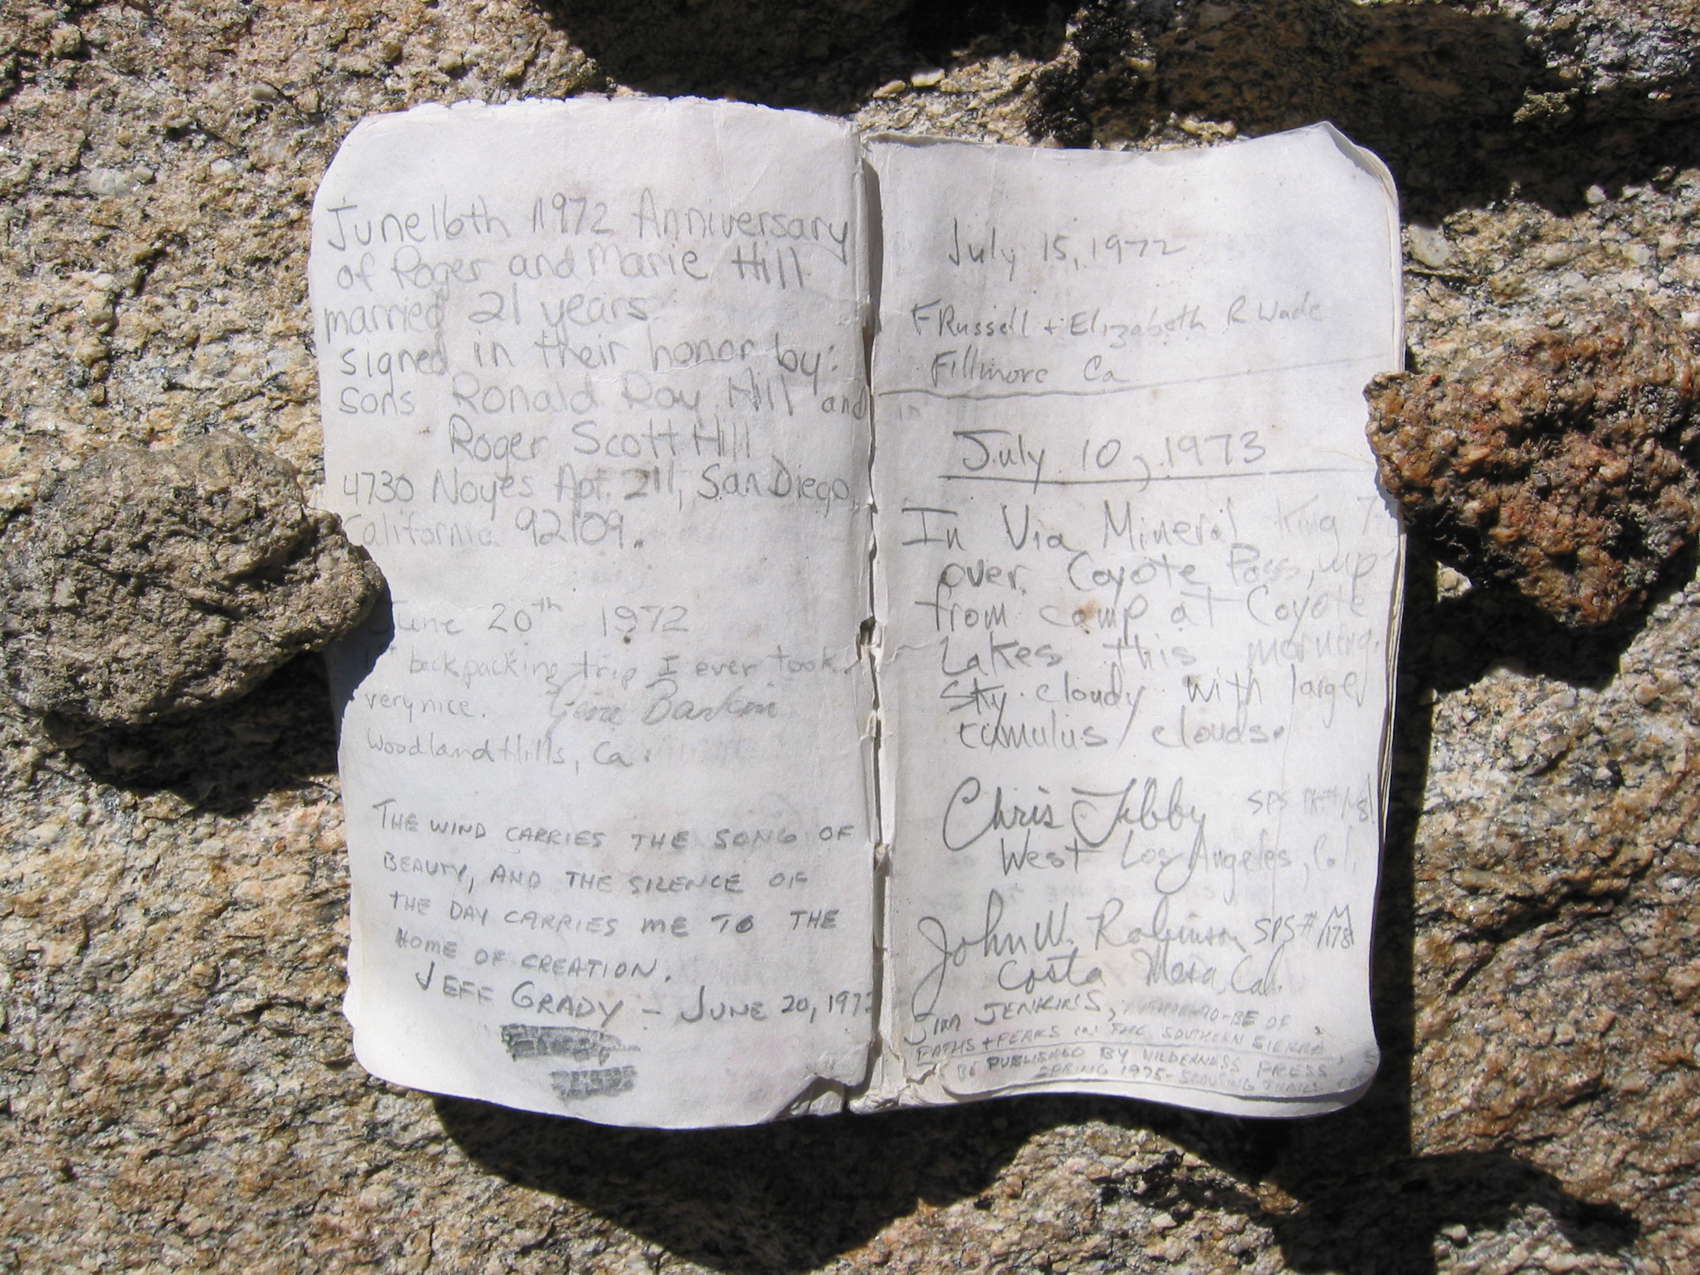 June 16th 1972 Anniversary
of Roger and Marie Hill
married 21 years
signed in their honor by:
sons Ronald Ray Hill and
Roger Scott Hill
4730 Noyes Apt. 211, San Diego,
California 92109.
June 20th 1972
1st backpacking trip I ever took.
very nice. Gene
Woodland Hills, Ca.
THE WIND CARRIES THE SONG OF
BEAUTY, AND THE SILENCE OF
THE DAY CARRIES ME TO THE
HOME OF CREATION.
JEFF GRADY - JUNE 20, 197
July 15, 1972
F Russell + Elizabeth R Wade
Fillmore Ca
July 10, 1973
In Via Mineral King
over Coyote Pass, up
from camp at Coyote
Lakes this morning.
Sky cloudy with large
cumulus clouds.
Chris Jebby SPS
West Los Angeles, Cal.
John W. Robinson SPS #
Costa Mesa, Cal.
JIM JENKINS, -BE OF
PATHS + PEAKS IN THE SOUTHERN SIERRA,
BE PUBLISHED BY WILDERNESS PRESS
SPRING 1975 - SCOUTING TRAILS